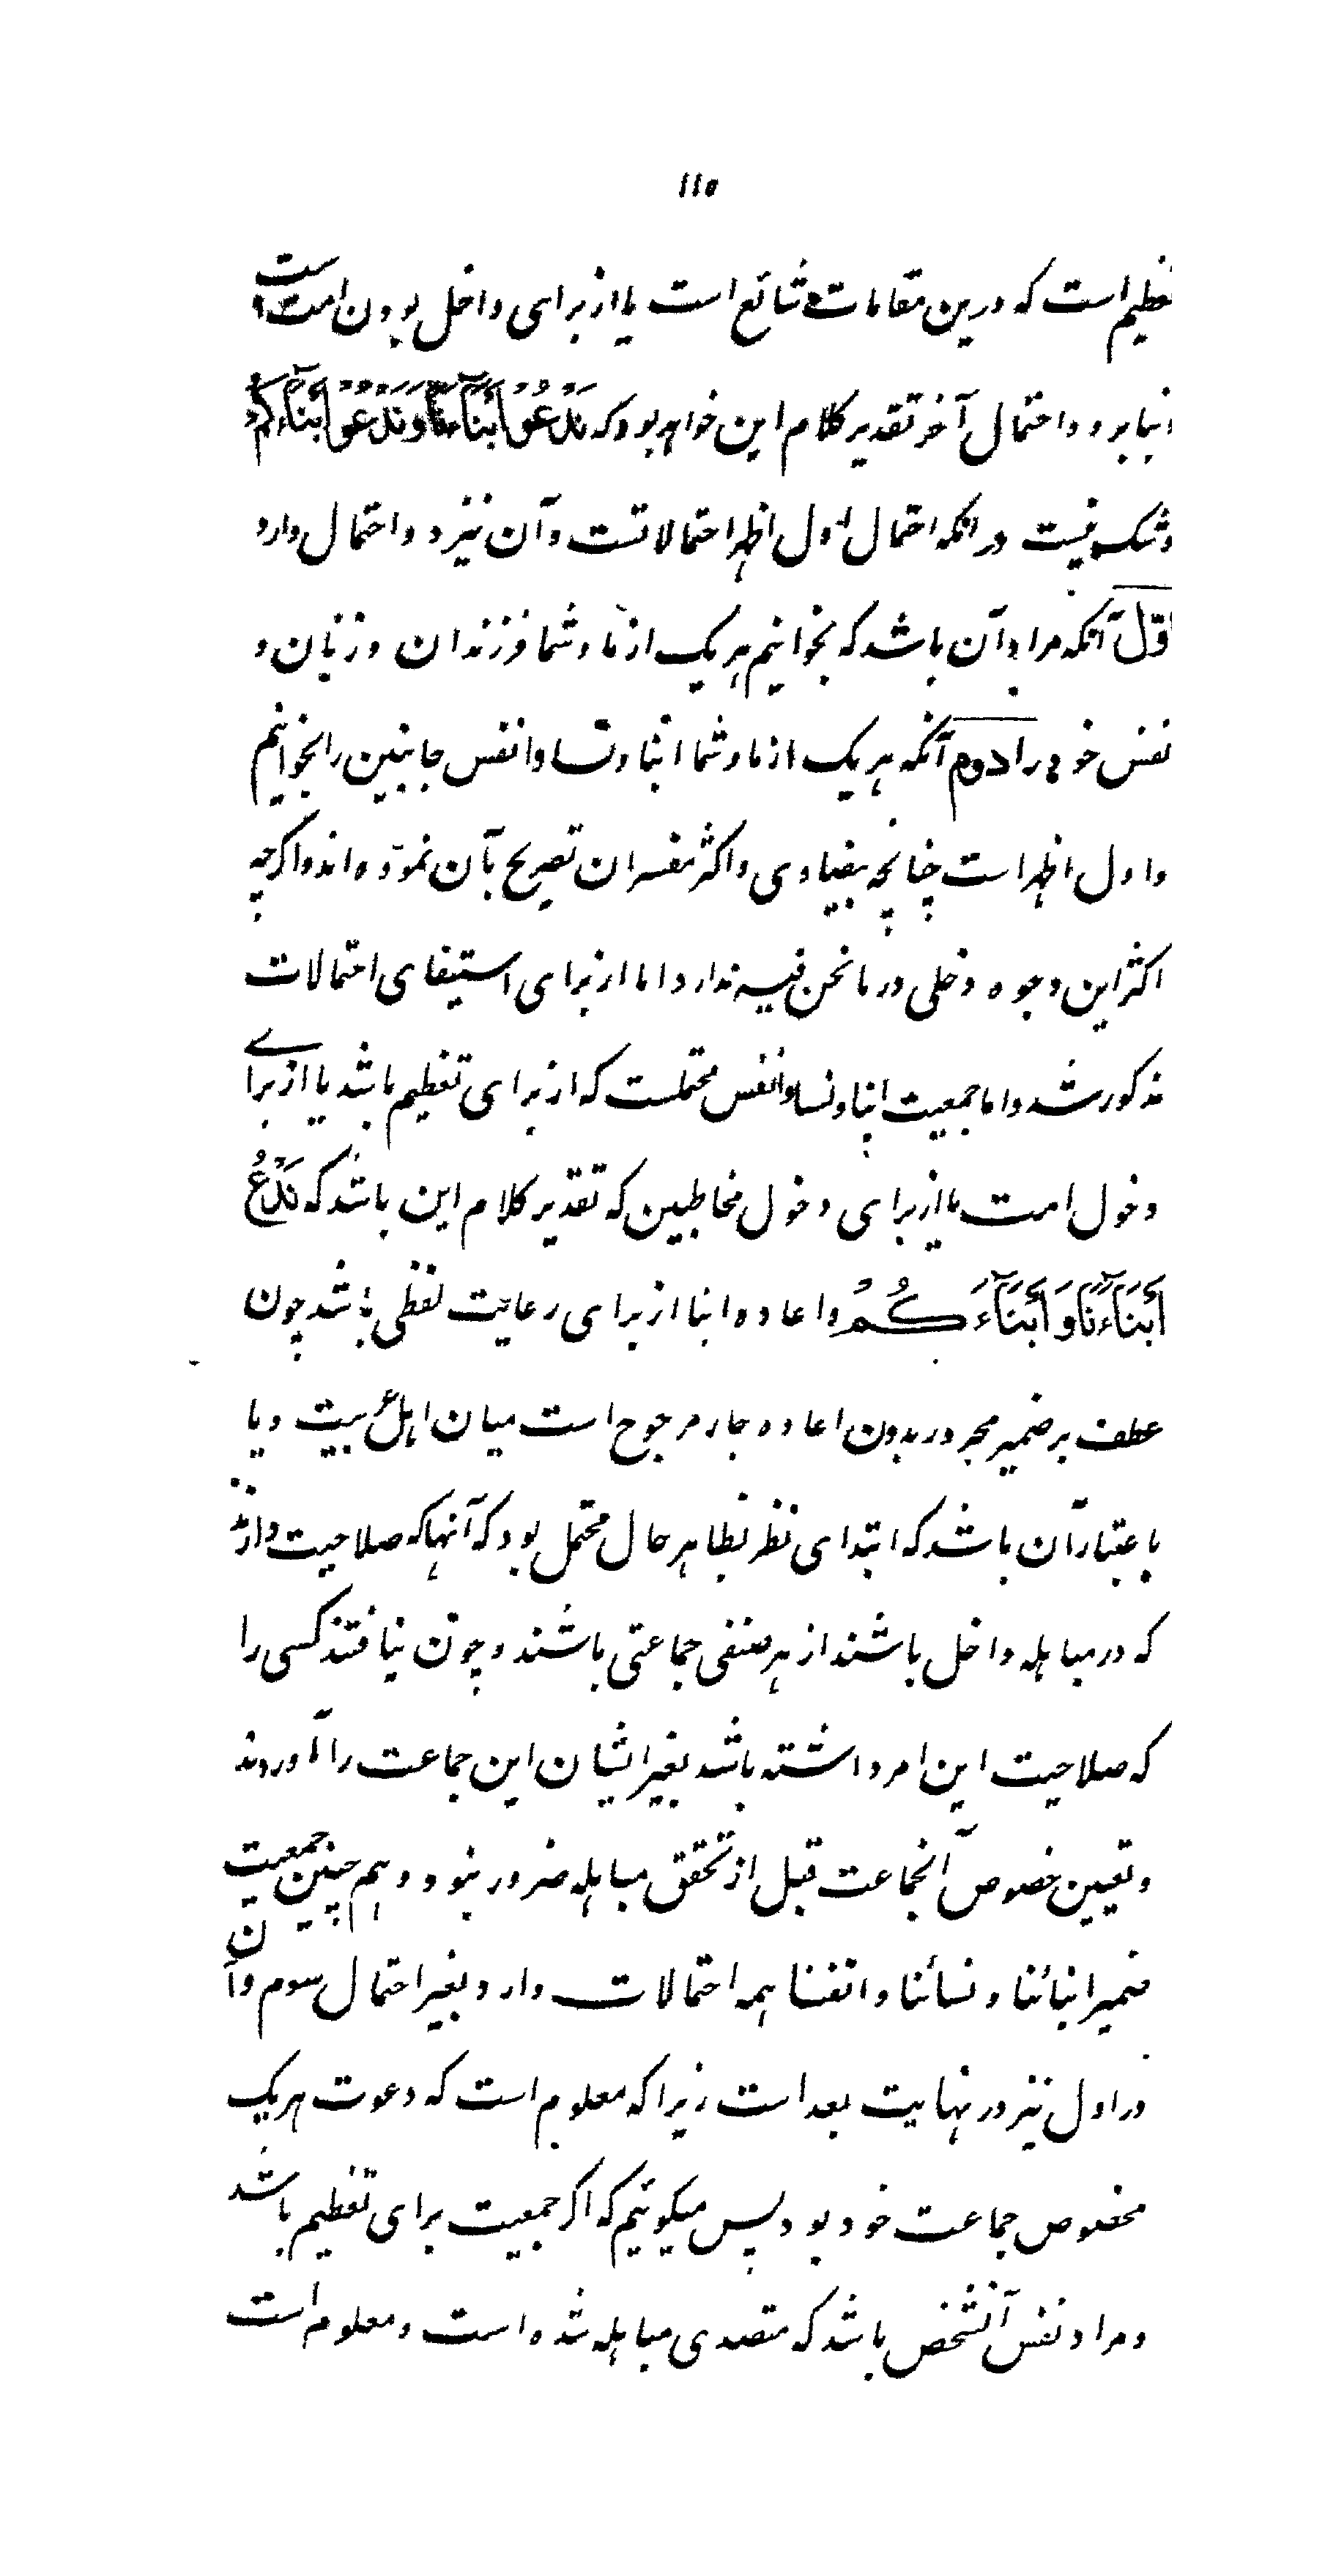 ١١٥
تعظیم است که درین مقامات شائع است یا از برای داخل بودن امت است
و بنا بر دو احتمال آخر تقدیر کلام این خواهد بود که نَدْعُ أَبْنَاءَنَا وَنَدْعُ أَبْنَاءَكُمْ
و شک نیست در انکه احتمال اول اظهر احتمالاتست و آن نیز دو احتمال دارد
اوّل آنکه مراد آن باشد که بخوانیم هر یک از ما و شما فرزندان و زنان و
نفس خود را دوم آنکه هر یک از ما و شما ابنا و نسا و انفس جانبین را بخوانیم
و اول اظهر است چنانچه بیضاوی و اکثر مفسران تصریح بآن نموده اند و اگرچه
اکثر این وجوه دخلی در ما نحن فیه ندارد اما از برای استیفای احتمالات
مذکور شد و اما جمعیت ابنا و نسا و انفس محتملست که از برای تعظیم باشد یا از برای
دخول امت یا از برای دخول مخاطبین که تقدیر کلام این باشد که نَدْعُ
أَبْنَاءَنَا وَأَبْنَاءَكُمْ و اعاده ابنا از برای رعایت لفظی باشد چون
عطف بر ضمیر مجرور بدون اعاده جار مرجوح است میان اهل عربیت و یا
باعتبار آن باشد که ابتدای نظر بظاهر حال محتمل بود که آنها که صلاحیت دارند
که در مباهله داخل باشند از هر صنفی جماعتی باشند و چون نیافتند کسی را
که صلاحیت این امر داشته باشد بغیر ایشان این جماعت را آوردند
و تعیین خصوص آنجماعت قبل از تحقق مباهله ضرور نبود و هم چنین جمعیت
ضمیر ابنائنا و نسائنا و انفسنا همه احتمالات دارد بغیر احتمال سوم و آن
در اول نیز در نهایت بعد است زیرا که معلوم است که دعوت هر یک
مخصوص جماعت خود بود پس میگوئیم که اگر جمعیت برای تعظیم باشد
و مراد نفس آنشخص باشد که متصدی مباهله شده است و معلوم است